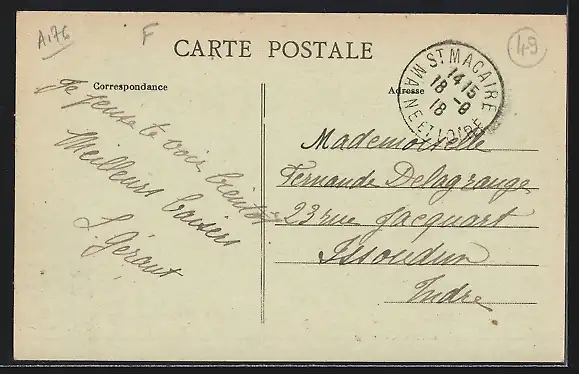 A176
F
49
CARTE POSTALE
Correspondance
Adresse
ST MACAIRE
14 15
18 - 9
18
MAINE ET LOIRE
Je pense te voir bientot
Meilleurs baisers
L Géraut
Mademoiselle
Fernande Delagrange
23 rue Jacquart
Issoudun
Indre